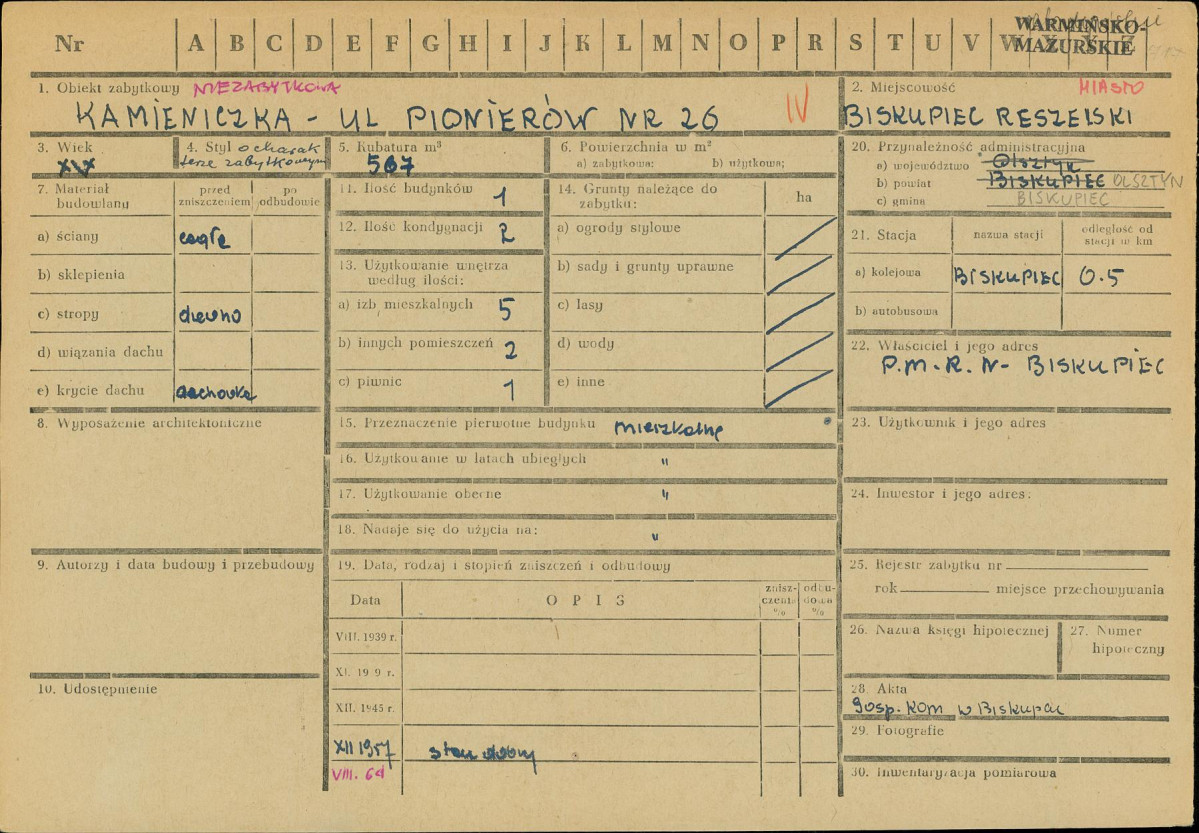 Nr A B C D E F G H I J K L M N O P R S T U V W
WARMIŃSKO-
MAZURSKIE
1. Obiekt zabytkowy NIEZABYTKOWA
KAMIENICZKA - UL PIONIERÓW NR 26 IV
2. Miejscowość MIASTO
BISKUPIEC RESZELSKI
3. Wiek
XIX
4. Styl o charak
terze zabytkowym
5. Kubatura m³
567
6. Powierzchnia w m²
a) zabytkowa: b) użytkowa:
20. Przynależność administracyjna
a) województwo Olsztyn
b) powiat BISKUPIEC OLSZTYN
c) gmina BISKUPIEC
7. Materiał
budowlany
przed
zniszczeniem
po
odbudowie
a) ściany cegła
b) sklepienia
c) stropy drewno
d) wiązania dachu
e) krycie dachu dachówka
11. Ilość budynków 1
12. Ilość kondygnacji 2
13. Użytkowanie wnętrza
według ilości:
a) izb mieszkalnych 5
b) innych pomieszczeń 2
c) piwnic 1
14. Grunty należące do
zabytku:
ha
a) ogrody stylowe
b) sady i grunty uprawne
c) lasy
d) wody
e) inne
21. Stacja
nazwa stacji
odległość od
stacji w km
a) kolejowa BISKUPIEC 0.5
b) autobusowa
22. Właściciel i jego adres
P.M.R.N- BISKUPIEC
8. Wyposażenie architektoniczne
15. Przeznaczenie pierwotne budynku mieszkalne
16. Użytkowanie w latach ubiegłych "
17. Użytkowanie obecne "
18. Nadaje się do użycia na: "
23. Użytkownik i jego adres
24. Inwestor i jego adres:
9. Autorzy i data budowy i przebudowy
19. Data, rodzaj i stopień zniszczeń i odbudowy
Data
OPIS
zniszczenia
%
odbudowa
%
VIII. 1939 r.
XI. 19 9 r.
XII. 1945 r.
XII 1957 stan dobry
VIII. 64
25. Rejestr zabytku nr
rok miejsce przechowywania
26. Nazwa księgi hipotecznej
27. Numer
hipoteczny
10. Udostępnienie
28. Akta
Gosp. Kom w Biskupcu
29. Fotografie
30. Inwentaryzacja pomiarowa